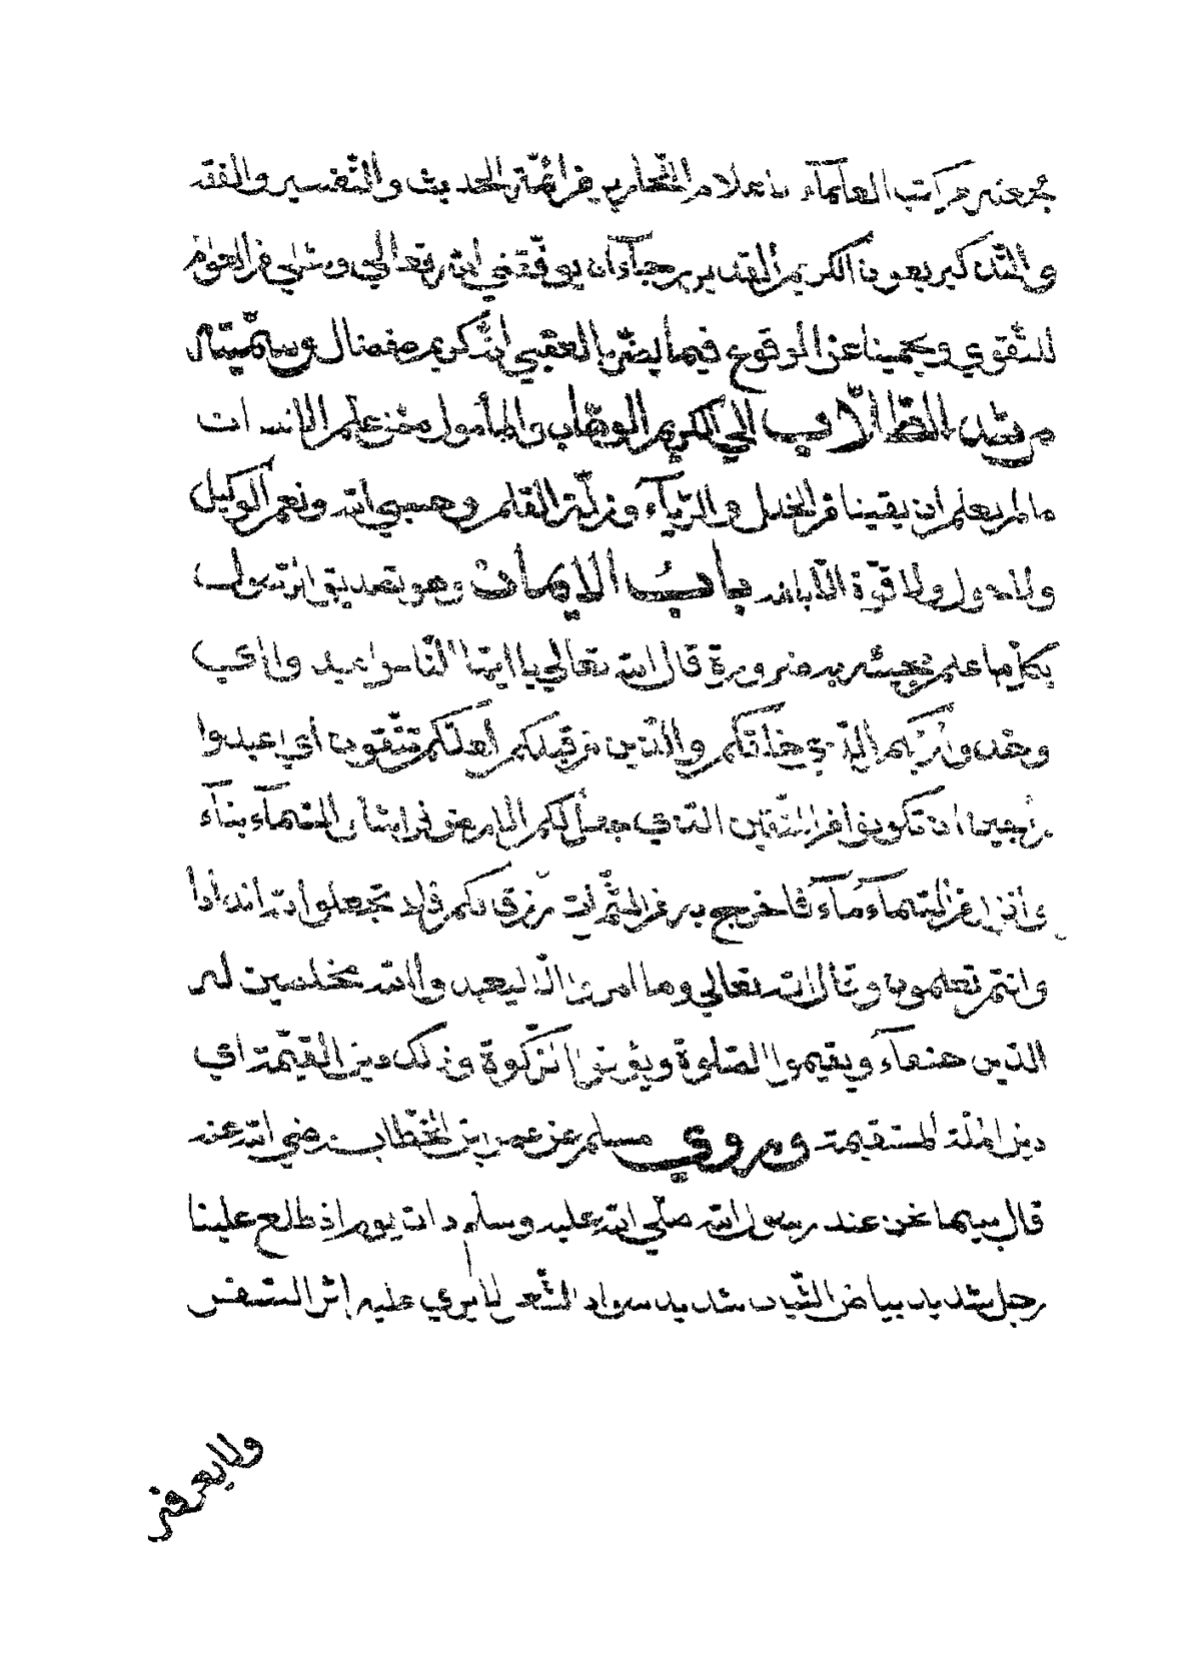 جمعته من كتب العلماء الاعلام النحارير من ائمّة الحديث والتّفسير والفقه
والتّذكير بعون الكريم القدير رجاء ان يوفّقني الله تعالي وسائر العوام
للتّقوي ويحمينا عن الوقوع فيما يضرّ بالعقبي انّه كريم مفضال وسمّيته
مرشد الطّلّاب الي الكريم الوهّاب والمأمول ممّن علّم الانسان
مالم يعلم ان يقينا من الخلل والرّياء وزلّة القلم وحسبي الله ونعم الوكيل
ولا حول ولا قوّة الّا بالله باب الايمان وهو تصديق الرّسول
بكلّ ما علم مجيئه به ضرورة قال الله تعالي يا ايّها النّاس اعبدوا اي
وحّدوا ربّكم الّذي خلقكم والّذين من قبلكم لعلّكم تتّقون أي اعبدوا
راجين ان تكونوا من المتّقين الّذي جعل لكم الارض فراشا والسّماء بناء
وانزل من السّماء ماء فاخرج به من الثّمرات رزقا لكم فلا تجعلوا لله اندادا
وانتم تعلمون وقال الله تعالي وما امروا الّا ليعبدوا الله مخلصين له
الدّين حنفاء ويقيموا الصّلوة ويؤتوا الزّكوة وذلك دين القيّمة اي
دين الملّة المستقيمة وروي مسلم عن عمر ابن الخطّاب رضي الله عنه
قال بينما نحن عند رسول الله صلّي الله عليه وسلّم ذات يوم اذ طلع علينا
رجل شديد بياض الثّياب شديد سواد الشّعر لا يري عليه اثر السّفر
ولا يعرفه